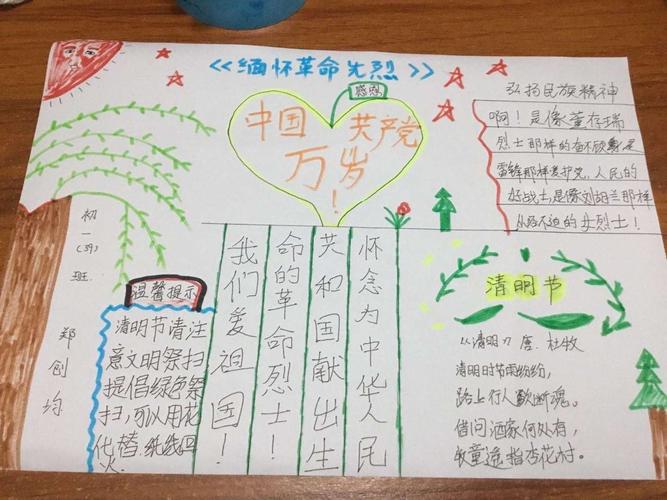 《缅怀革命先烈》
感恩
中国 共产党
万岁!
弘扬民族精神
啊!是像董存瑞
烈士那样的奋不顾身,是
雷锋那样爱护党、人民的
好战士,是像刘胡兰那样
从容不迫的女烈士!
初一(39)班
郑创均
温馨提示
清明节请注
意文明祭扫
提倡绿色祭
扫,可以用花
代替
怀念为中华人民
共和国献出生
命的革命烈士!
我们爱祖国!
清明节
《清明》唐·杜牧
清明时节雨纷纷,
路上行人欲断魂。
借问酒家何处有,
牧童遥指杏花村。